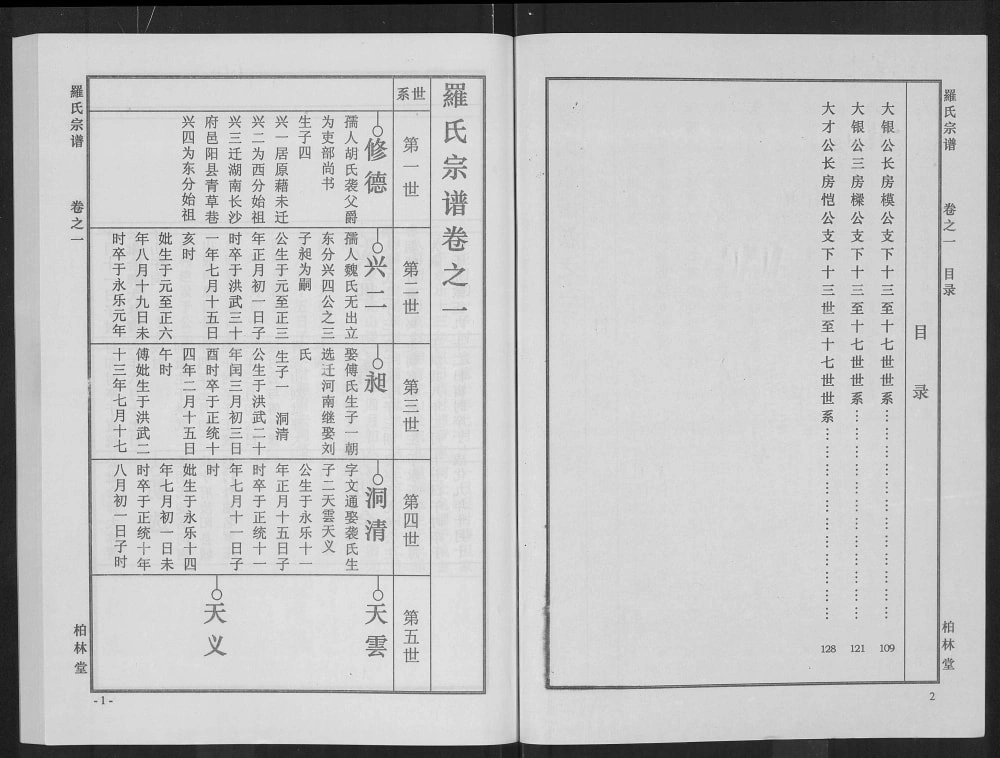 羅氏宗谱 卷之一 目录
柏林堂
目录
大银公长房模公支下十三至十七世世系……………………109
大银公三房樑公支下十三至十七世世系……………………121
大才公长房恺公支下十三世至十七世世系……………………128
2
羅氏宗谱卷之一
世系
第一世
修德
孺人胡氏袭父爵
为吏部尚书
生子四
兴一居原藉未迁
兴二为西分始祖
兴三迁湖南长沙
府邑阳县青草巷
兴四为东分始祖
第二世
兴二
孺人魏氏无出立
东分兴四公之三
子昶为嗣
公生于元至正三
年正月初一日子
时卒于洪武三十
一年七月十五日
亥时
妣生于元至正六
年八月十九日未
时卒于永乐元年
第三世
昶
娶傅氏生子一朝
选迁河南继娶刘
氏
生子一 洞清
公生于洪武二十
年闰三月初三日
酉时卒于正统十
四年二月十五日
午时
傅妣生于洪武二
十三年七月十七
第四世
洞清
字文通娶袭氏生
子二天雲天义
公生于永乐十一
年正月十五日子
时卒于正统十一
年七月十一日子
时
妣生于永乐十四
年七月初一日未
时卒于正统十年
八月初一日子时
第五世
天雲
天义
羅氏宗谱 卷之一
柏林堂
- 1 -